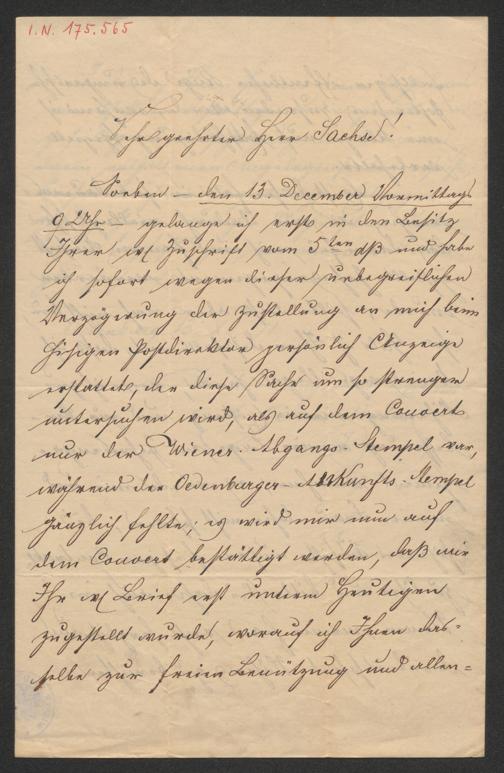 I.N. 175.565
Sehr geehrter Herr Sachse!
Soeben – den 13. December Vormittags
9 Uhr – gelange ich erst in den Besitz
Ihrer w/ Zuschrift vom 5ten dß und habe
ich sofort wegen dieser unbegreiflichen
Verzögerung der Zustellung an mich beim
hiesigen Postdirektor persönlich Anzeige
erstattet, der diese Sache um so strenger
untersuchen wird, als auf dem Couvert
nur der Wiener-Abgangs-Stempel war,
während der Oedenburger-Ankunfts-Stempel
gänzlich fehlte; es wird mir nun auf
dem Couvert bestättigt werden, daß mir
Ihr w/ Brief erst unterm Heutigen
zugestellt wurde, worauf ich Ihnen das-
selbe zur freien Benützung und allen-